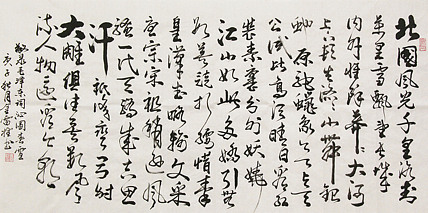 北國風光千里冰封
萬里雪飄望長城
内外惟餘莽莽大河
上下頓失滔滔山舞銀
蛇原馳蠟象欲與天
公試比高須晴日看紅
裝素裹分外妖嬈
江山如此多嬌引無
數英雄競折腰惜秦
皇漢武略輸文采
唐宗宋祖稍遜風
騷一代天驕成吉思
汗祇識彎弓射
大雕俱往矣數風
流人物還看今朝
敬錄毛澤東詞沁園春雪
庚子秋月